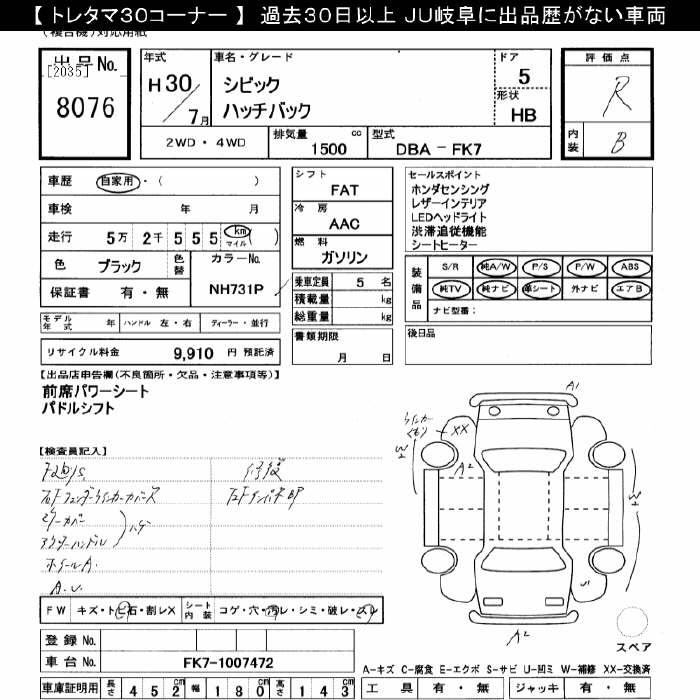 【 トレタマ30コーナー 】 過去30日以上 JU岐阜に出品歴がない車両
(複合機)対応用紙
出品No.
[2035]
8076
年式
H30/7月
車名・グレード
シビック
ハッチバック
ドア
5
形状
HB
評価点
R
内装
B
2WD・4WD
排気量 1500 cc
型式 DBA-FK7
車歴 自家用・( )
車検 年 月
走行 5万 2千 5 5 5 km マイル ( )
色 ブラック
色替
カラーNo.
NH731P
保証書 有・無
シフト
FAT
冷房
AAC
燃料
ガソリン
乗車定員 5 名
積載量 kg
総重量 kg
書類期限
月 日
セールスポイント
ホンダセンシング
レザーインテリア
LEDヘッドライト
渋滞追従機能
シートヒーター
装備品
S/R 純A/W P/S P/W ABS
純TV 純ナビ 革シート 外ナビ エアB
ナビ型番:
後日品
モデル年式 年 ハンドル 左・右 ディーラー・並行
リサイクル料金 9,910 円 預託済
【出品店申告欄(不良箇所・欠品・注意事項等)】
前席パワーシート
パドルシフト
【検査員記入】
修復
ミラーカバー
アウターハンドル
ハゲ
ホイールA.
A.U.
A1
XX
A2
W2
W2
A2
スペア
FW キズ・トビ石・割レX
シート内装 コゲ・穴・汚レ・シミ・破レ・スレ
登録No.
車台No. FK7-1007472
車庫証明用 長さ 452cm 幅 180cm 高さ 143cm
A-キズ C-腐食 E-エクボ S-サビ U-凹ミ W-補修 XX-交換済
工具 有・無 ジャッキ 有・無